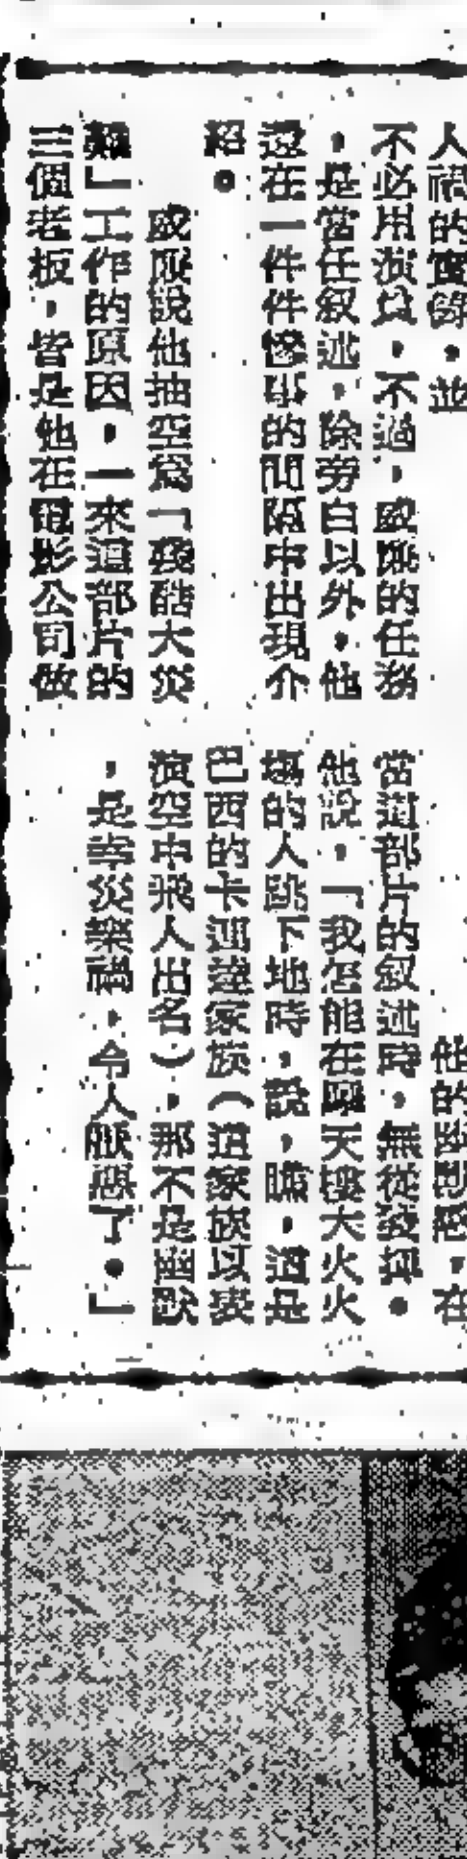 人禍的實錄，並
不必用演員，不過，威廉的任務
，是當任叙述，除旁白以外，他
還在一件件慘事的間隔中出現介
紹。
威廉說他抽空爲「殘酷大災
難」工作的原因，一來這部片的
三個老板，皆是他在電影公司做
他的幽默感，在
當這部片的叙述時，無從發揮。
他說，「我怎能在摩天樓大火火
塲的人跳下地時，說，瞧，這是
巴西的卡運達家族（這家族以表
演空中飛人出名），那不是幽默
，是幸災樂禍，令人厭惡了。」